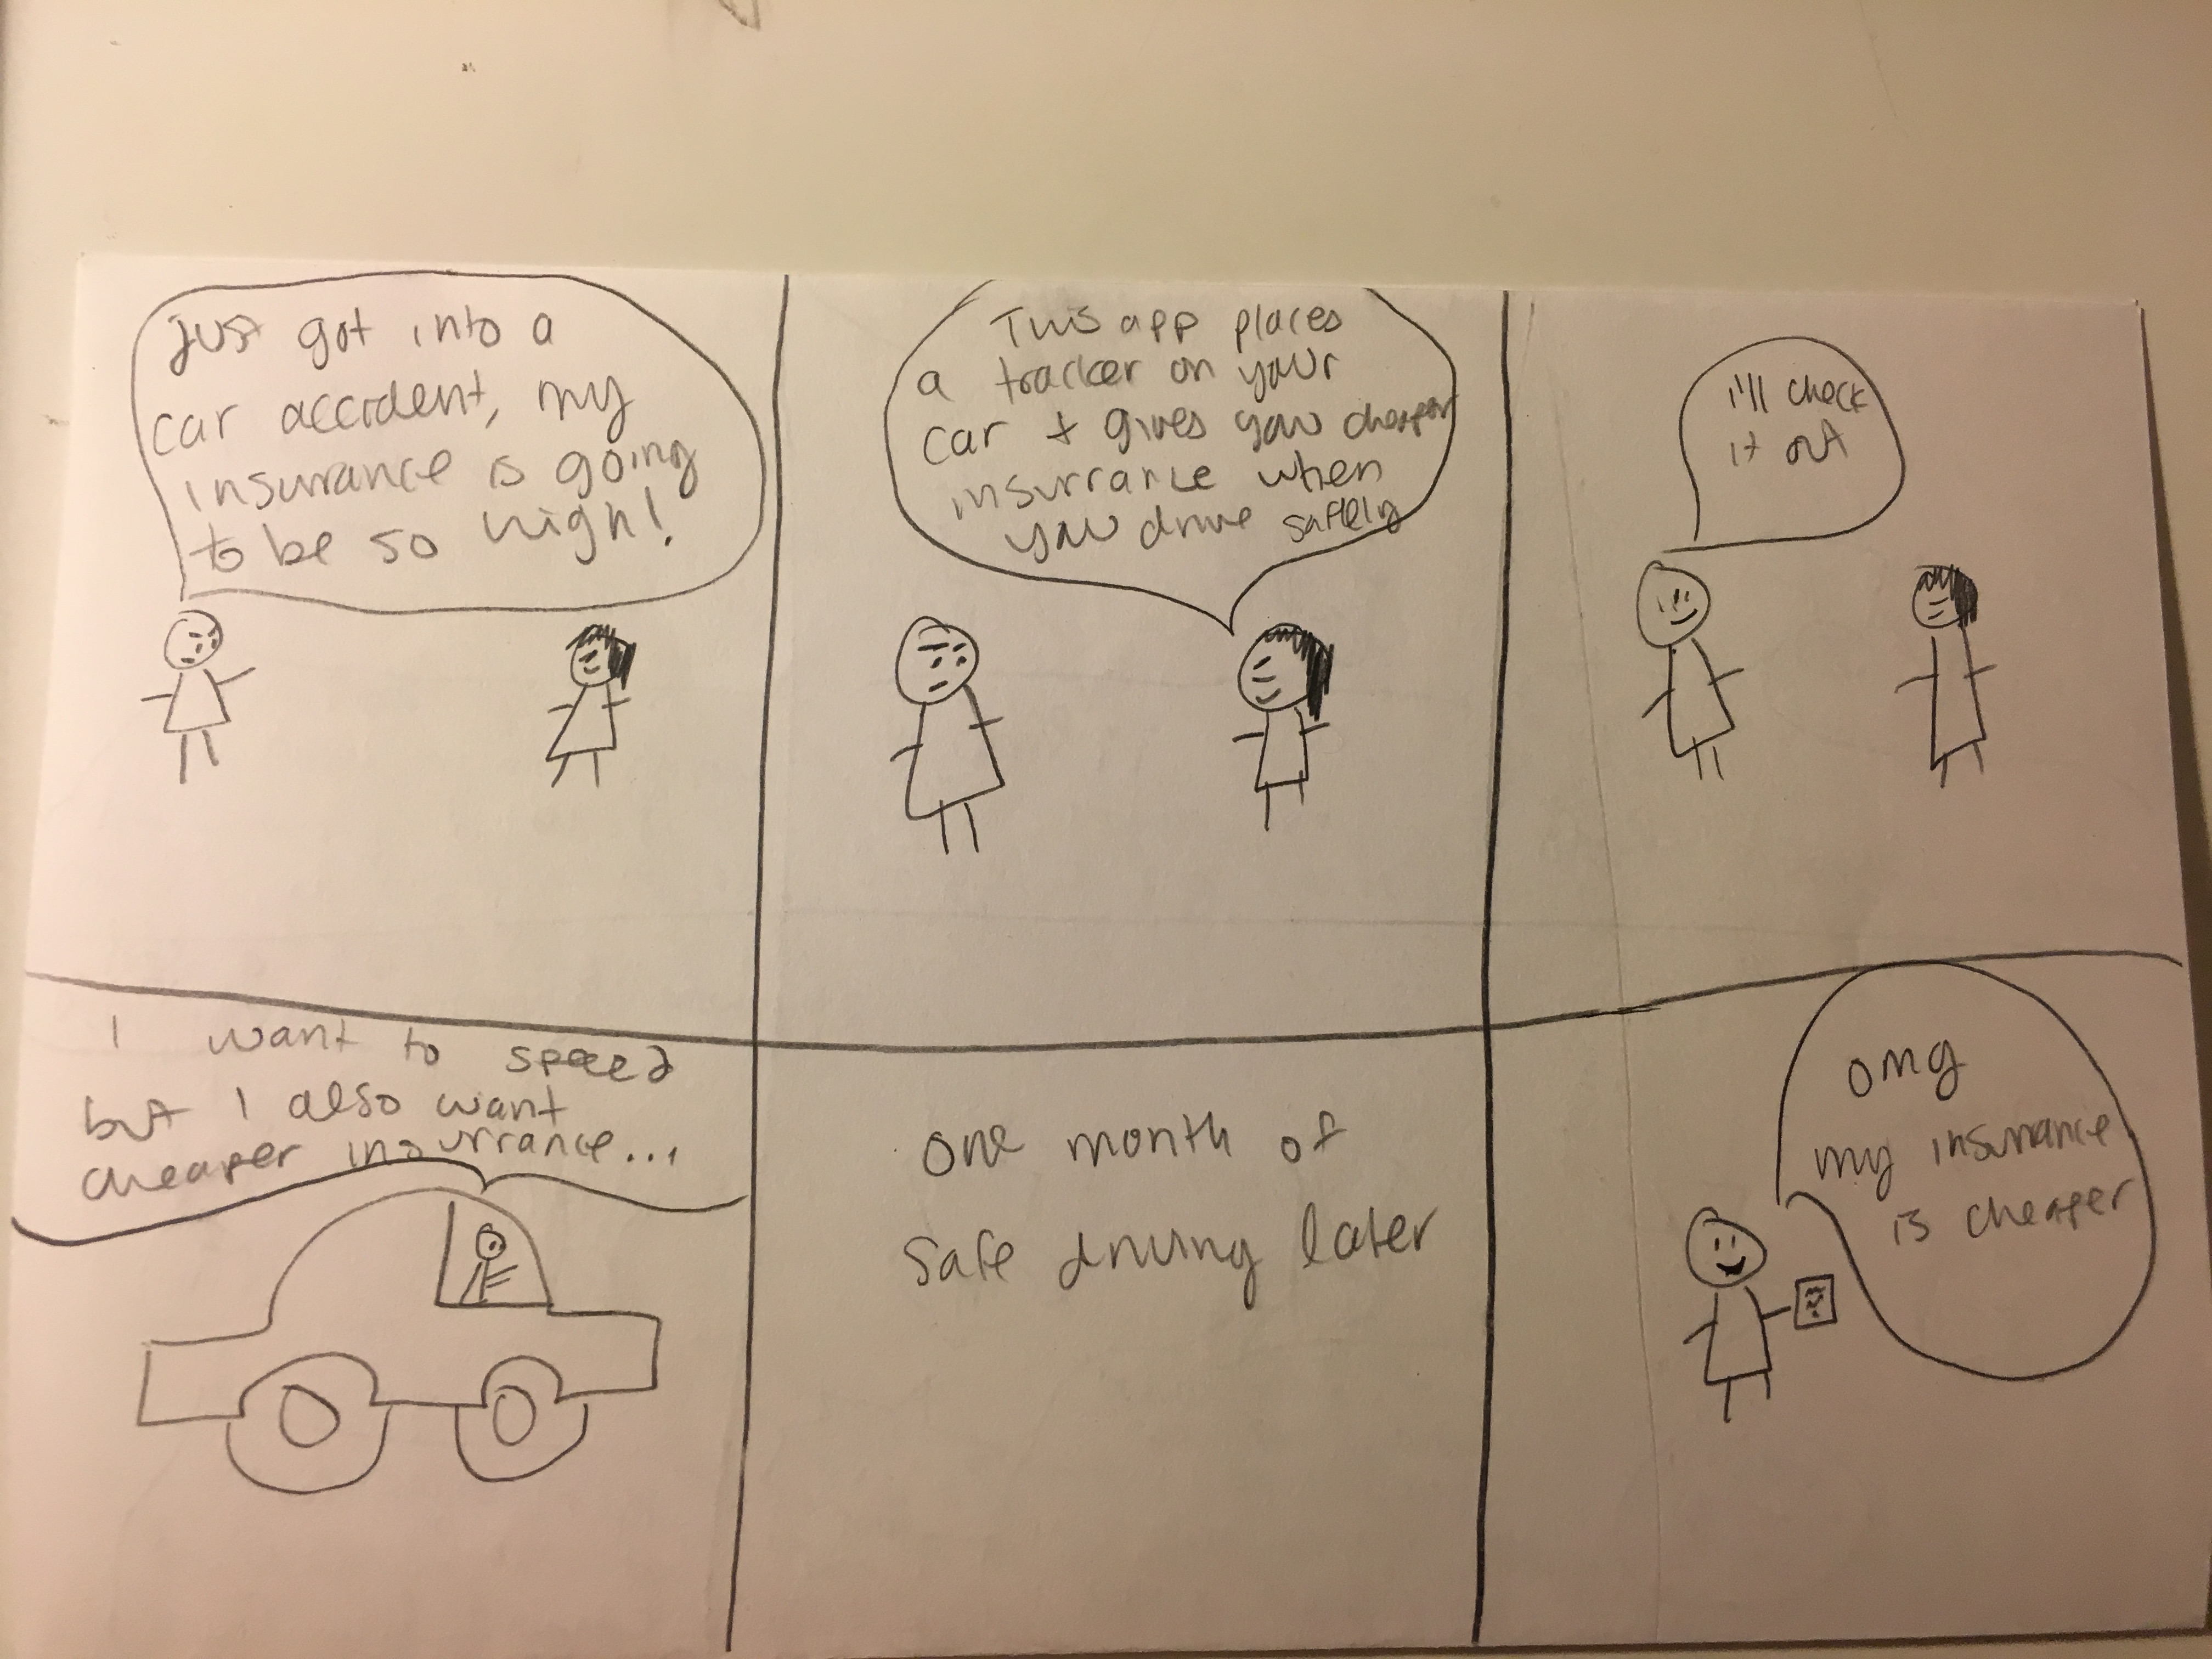 just got into a
car accident, my
insurrance is going
to be so high!
This app places
a tracker on your
car + gives you cheaper
insurrance when
you drive safely
i'll check
it out
I want to speed
but I also want
cheaper insurrance...
one month of
safe driving later
omg
my insurrance
is cheaper